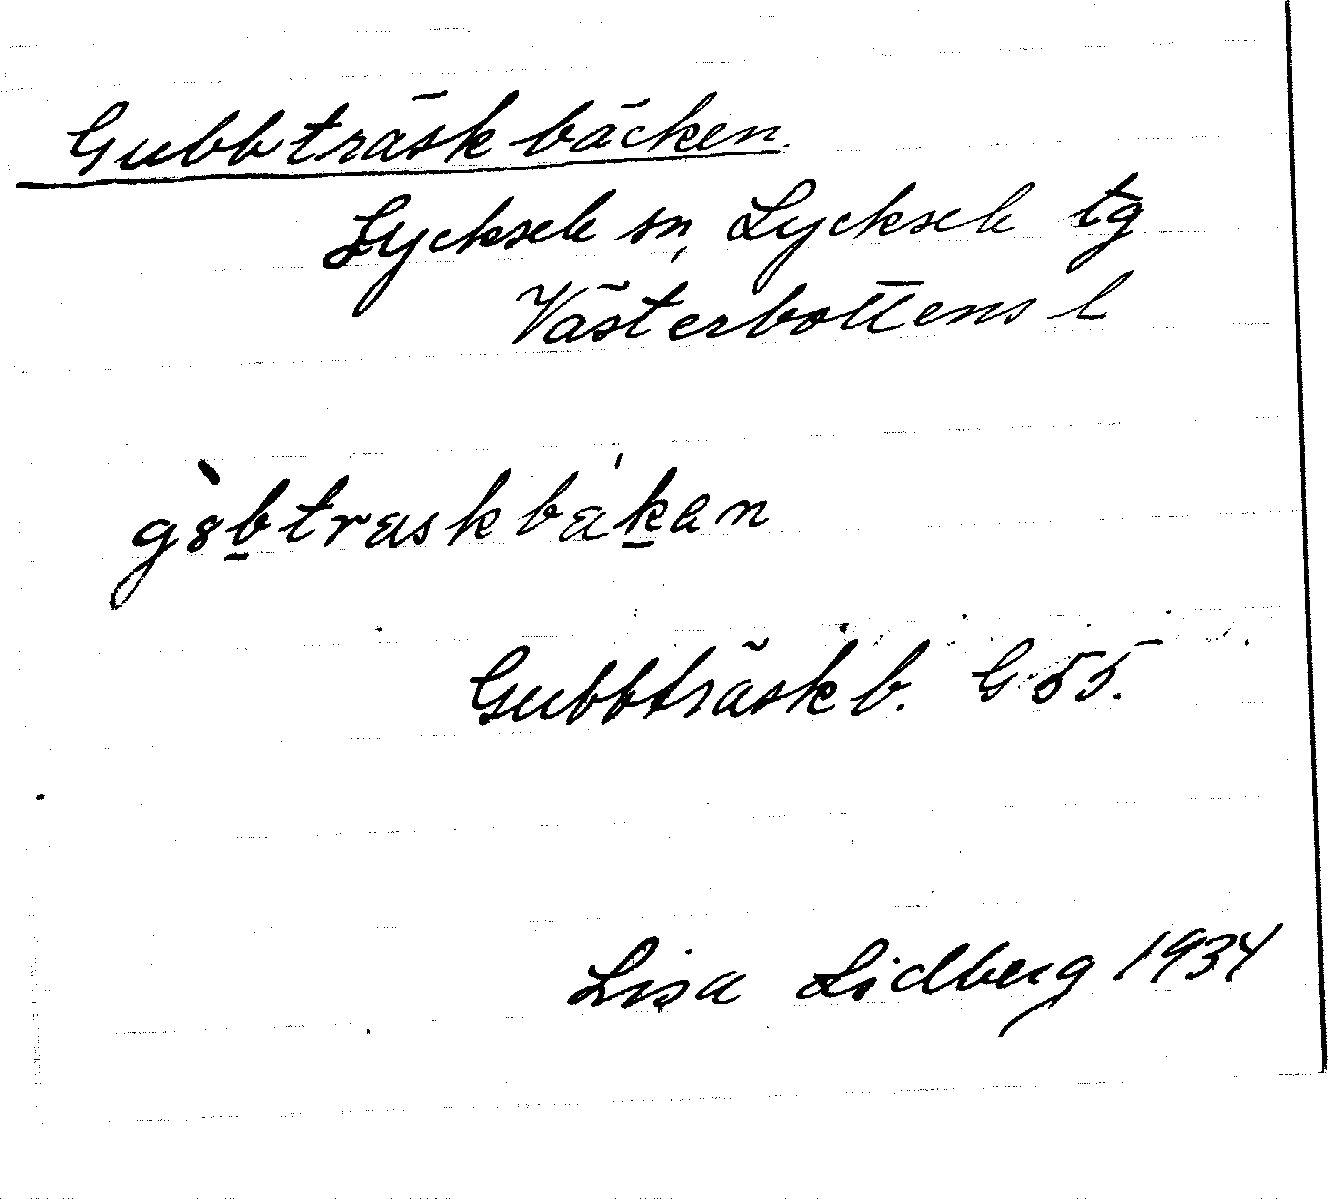 Gubbträskbäcken.
Lycksele sn, Lycksele tg
Västerbottens l
gȣ̀b̲traskbak̲'an
Gubbträskb. G 55.
Lisa Lidberg 1934